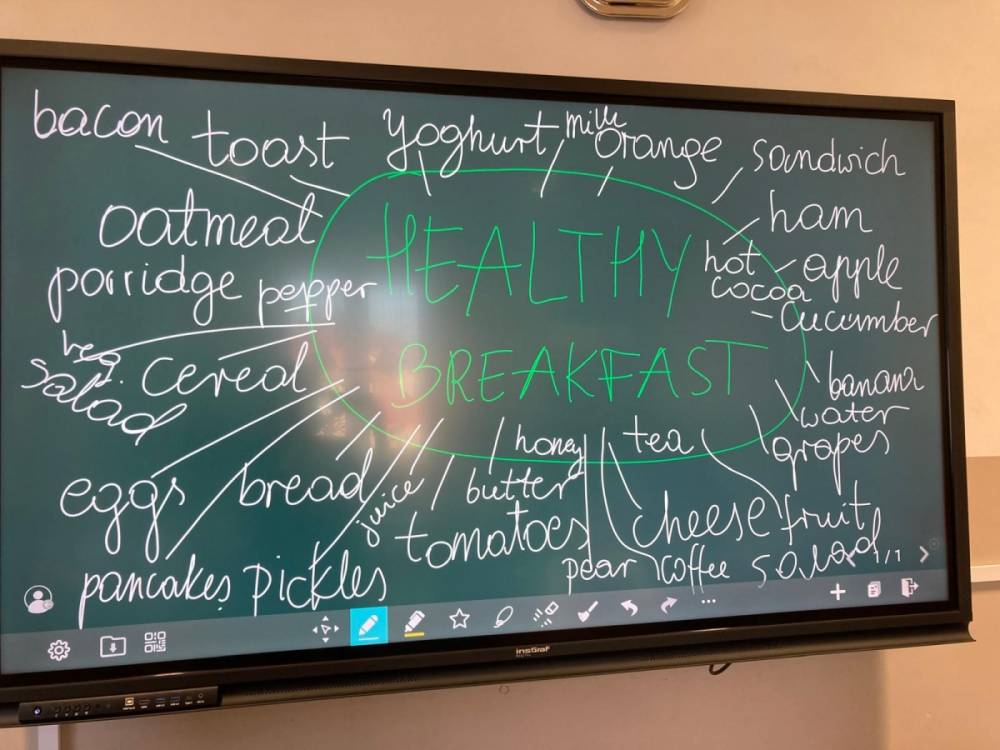 bacon
toast
yoghurt
milk
orange
sandwich
oatmeal
ham
HEALTHY
hot
cocoa
apple
porridge
pepper
cucumber
veg.
salad
cereal
BREAKFAST
banana
water
grapes
honey
tea
eggs
bread
juice
butter
tomatoes
cheese
fruit
salad
pancakes
pickles
pear
coffee
1/1
insGraf